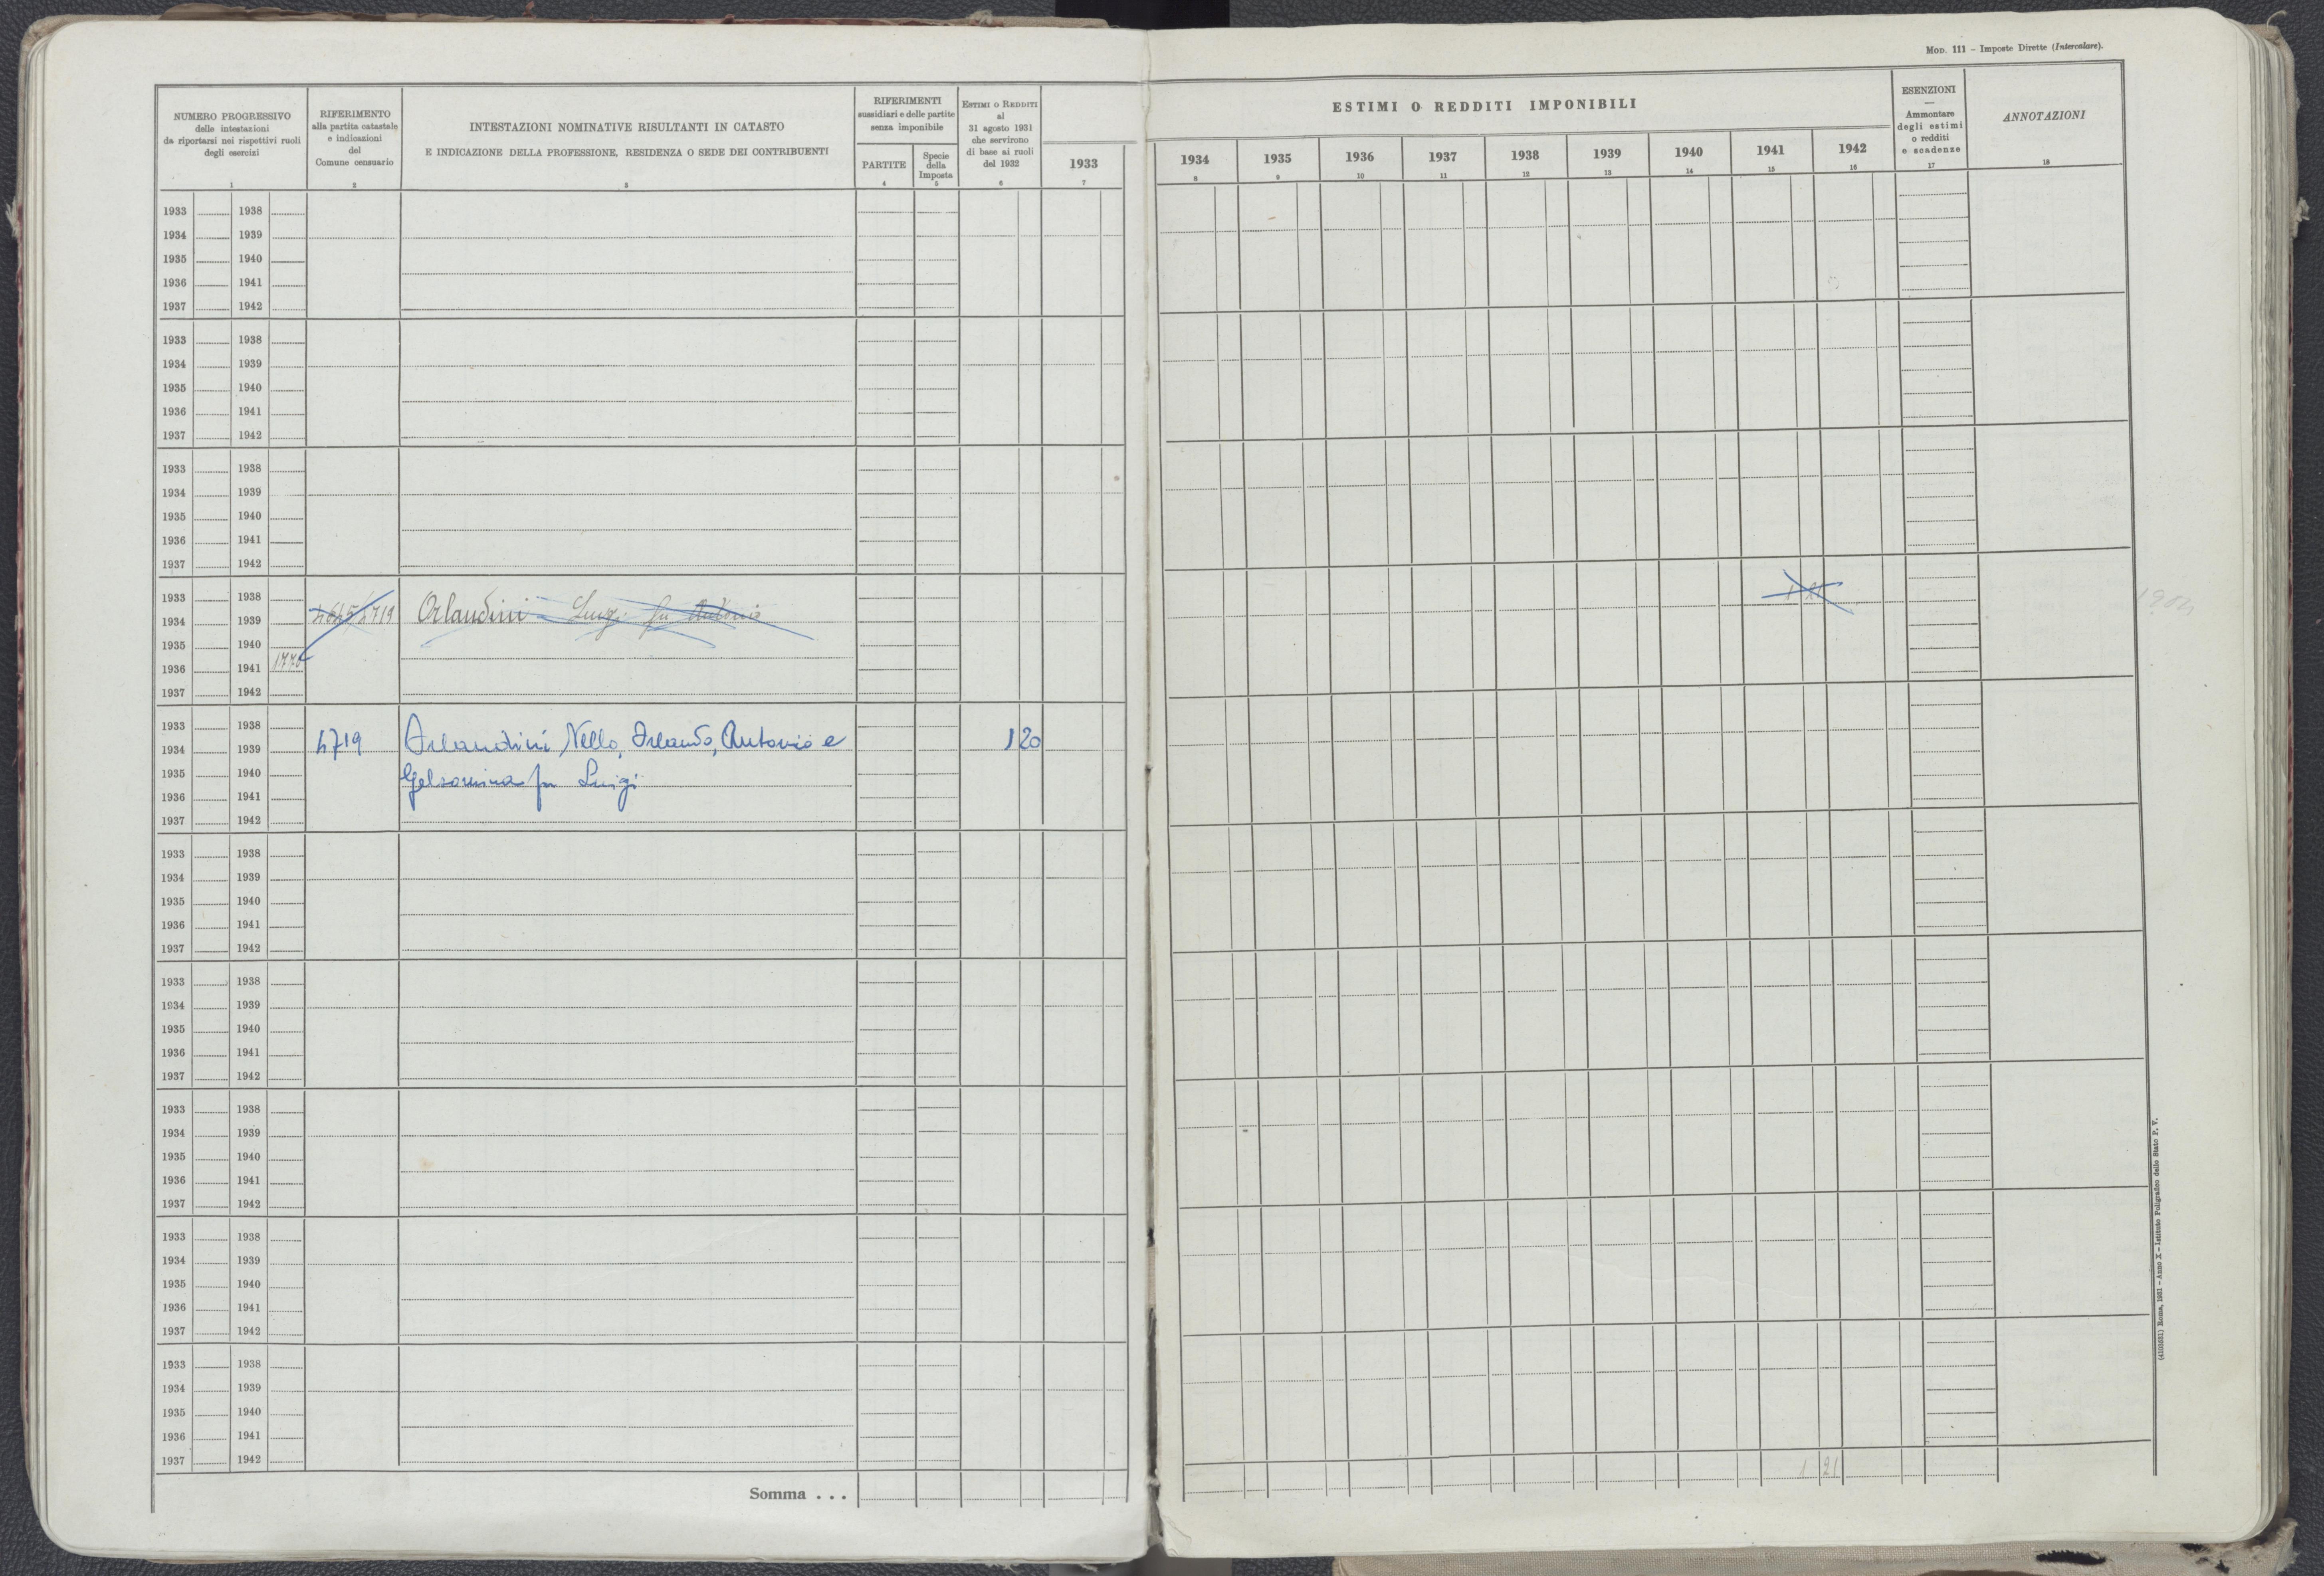 Mod. 111 – Imposte Dirette (Intercalare).
NUMERO PROGRESSIVO
delle intestazioni
da riportarsi nei rispettivi ruoli
degli esercizi
1
RIFERIMENTO
alla partita catastale
e indicazioni
del
Comune censuario
2
INTESTAZIONI NOMINATIVE RISULTANTI IN CATASTO
E INDICAZIONE DELLA PROFESSIONE, RESIDENZA O SEDE DEI CONTRIBUENTI
3
RIFERIMENTI
sussidiari e delle partite
senza imponibile
PARTITE
4
Specie
della
Imposta
5
Estimi o Redditi
al
31 agosto 1931
che servirono
di base ai ruoli
del 1932
6
ESTIMI O REDDITI IMPONIBILI
1933 1934 1935 1936 1937 1938 1939 1940 1941 1942
7 8 9 10 11 12 13 14 15 16
ESENZIONI
—
Ammontare
degli estimi
o redditi
e scadenze
17
ANNOTAZIONI
18
1933 1938
1934 1939
1935 1940
1936 1941
1937 1942
1933 1938
1934 1939
1935 1940
1936 1941
1937 1942
1933 1938
1934 1939
1935 1940
1936 1941
1937 1942
1933 1938
1934 1939 4719 Orlandini Luigi fu Antonio 1 21
1935 1940
1936 1941
1937 1942
1933 1938
1934 1939 4719 Orlandini Nello, Orlando, Antonio e 1 20
1935 1940 Gelsomina fu Luigi
1936 1941
1937 1942
1933 1938
1934 1939
1935 1940
1936 1941
1937 1942
1933 1938
1934 1939
1935 1940
1936 1941
1937 1942
1933 1938
1934 1939
1935 1940
1936 1941
1937 1942
1933 1938
1934 1939
1935 1940
1936 1941
1937 1942
1933 1938
1934 1939
1935 1940
1936 1941
1937 1942
Somma . . . 1 21
Roma, 1931 – Anno X – Istituto Poligrafico dello Stato P. V.